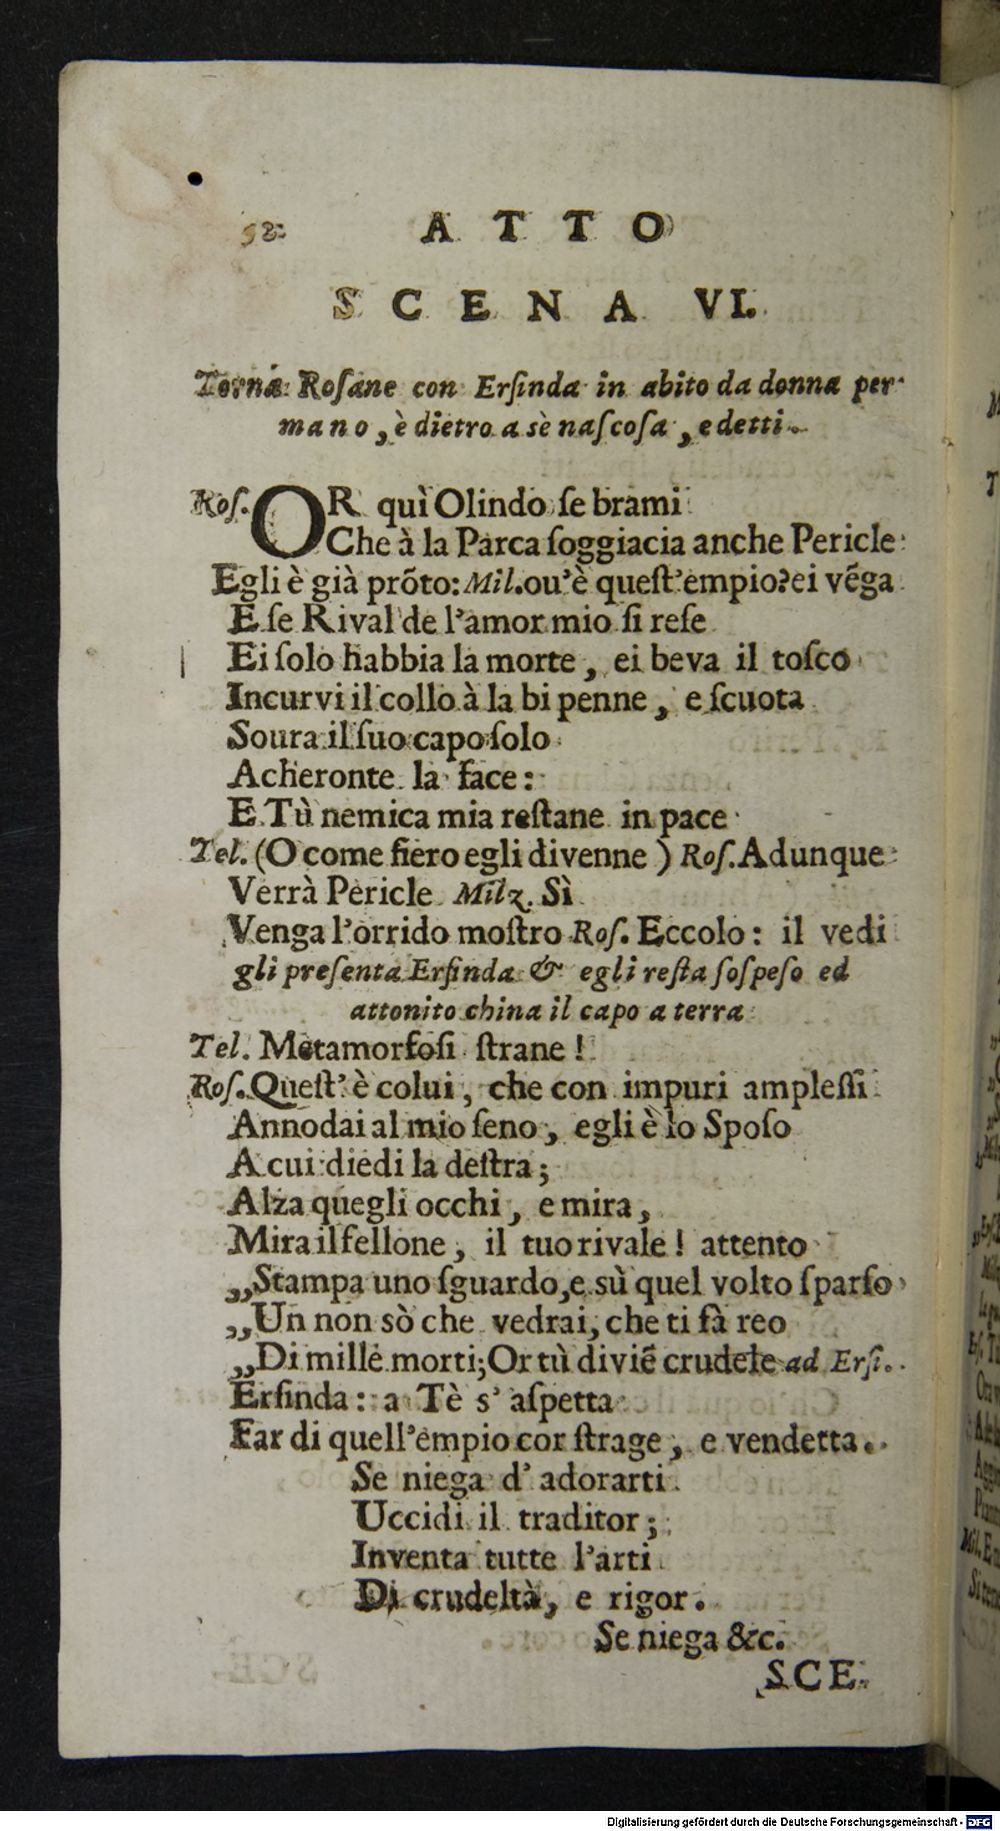 52 ATTO
SCENA VI.
Torna Roſane con Erſinda in abito da donna per
mano, è dietro a sè naſcoſa, e detti.
Roſ. OR quì Olindo ſe brami
Che à la Parca ſoggiacia anche Pericle
Egli è già prõto: Mil. ou'è queſt'empio? ei vẽga
E ſe Rival de l'amor mio ſi reſe
Ei ſolo habbia la morte, ei beva il toſco
Incurvi il collo à la bi penne, e ſcuota
Soura il ſuo capo ſolo
Acheronte la face:
E Tù nemica mia reſtane in pace
Tel. (O come fiero egli divenne) Roſ. Adunque
Verrà Pericle Milz. Sì
Venga l'orrido moſtro Roſ. Eccolo: il vedi
gli preſenta Erſinda & egli reſta ſoſpeſo ed
attonito china il capo a terra
Tel. Metamorfoſi ſtrane!
Roſ. Queſt'è colui, che con impuri ampleſſi
Annodai al mio ſeno, egli è lo Spoſo
A cui diedi la deſtra;
Alza quegli occhi, e mira,
Mira il fellone, il tuo rivale! attento
„Stampa uno ſguardo, e sù quel volto ſparſo
„Un non sò che vedrai, che ti fà reo
„Di mille morti; Or tù diviẽ crudele ad Erſi.
Erſinda: a Tè s'aſpetta
Far di quell'empio cor ſtrage, e vendetta.
Se niega d'adorarti
Uccidi il traditor;
Inventa tutte l'arti
Di crudeltà, e rigor.
Se niega &c.
SCE
Digitalisierung gefördert durch die Deutsche Forschungsgemeinschaft - DFG